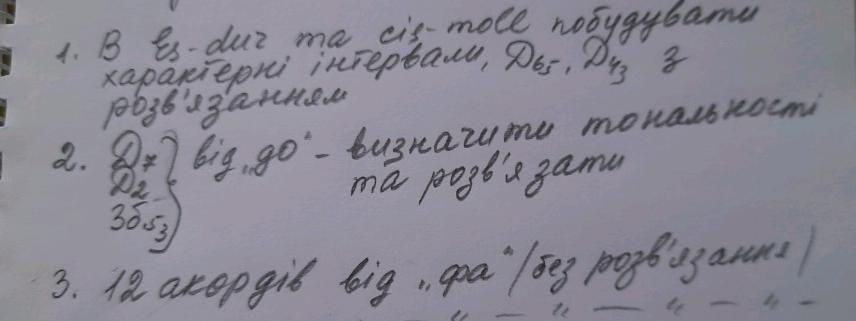 1. В Es-dur та cis-moll побудувати
характерні інтервали, Д65, Д43 з
розв'язанням
2. Д7 } від „до“ - визначити тональності
Д2 та розв'язати
Зб53
3. 12 акордів від „фа“ /без розв'язання/
„ — „ — „ — „ —